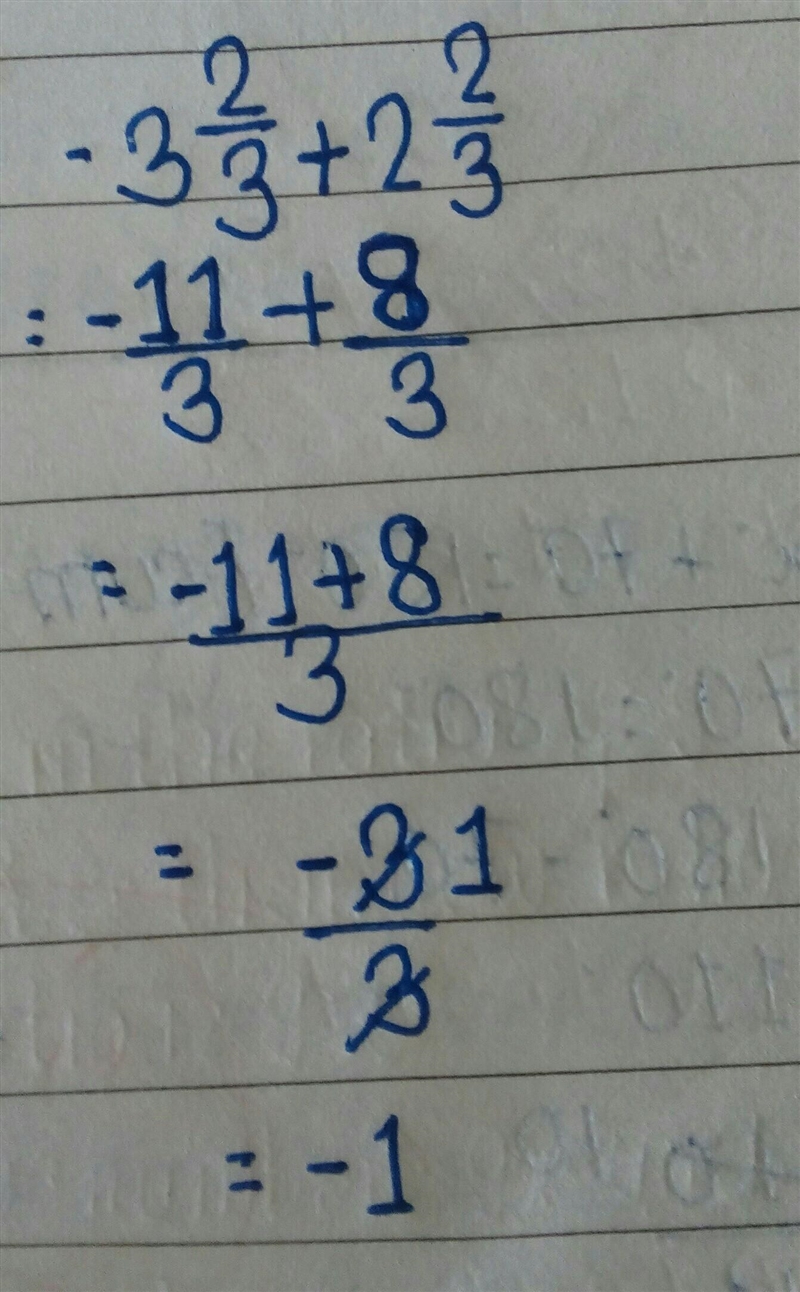 -3 2/3 + 2 2/3
= -11/3 + 8/3
= -11+8/3
= -3/3 1
= -1